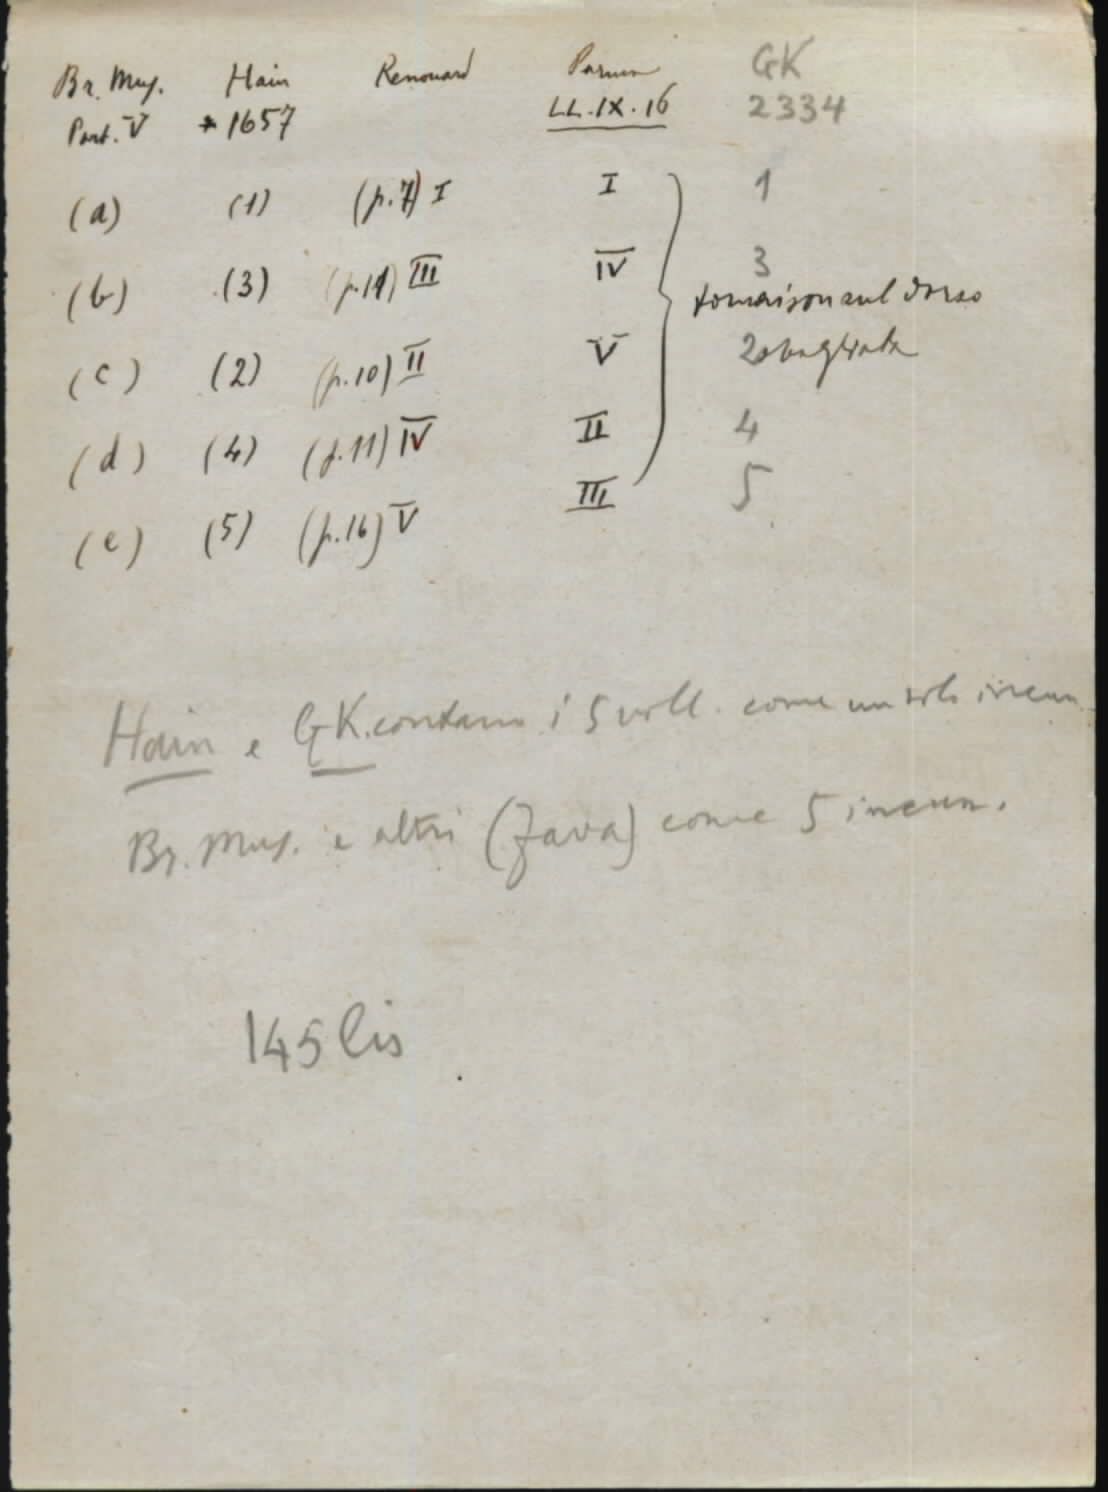 Br. Mus. Hain Renouard Parma GK
Part. V * 1657 LL.IX.16 2334
(a) (1) (p.7) I I 1
(b) (3) (p.11) III IV 3
tomaison sul dorso
(c) (2) (p.10) II V 2 sbagliata
(d) (4) (p.11) IV II 4
(e) (5) (p.16) V III 5
Hain e GK. contano i 5 voll. come un solo incun.
Br. Mus. e altri (Zava) come 5 incun.
145 bis